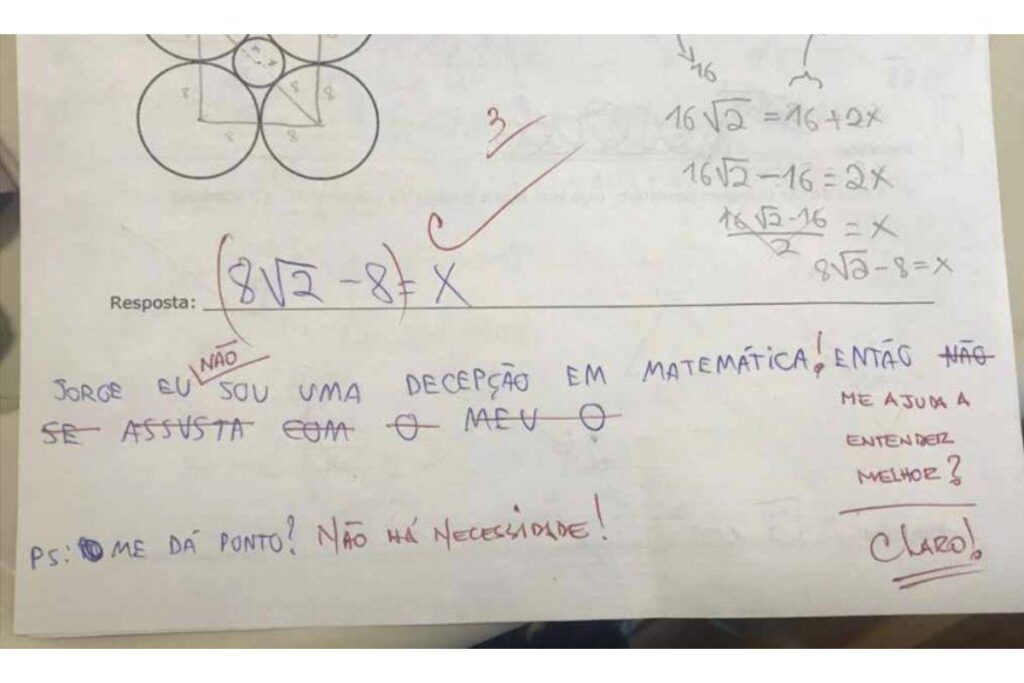 8 8 8 8 8
16
16√2 = 16 + 2x
16√2 - 16 = 2x
16√2 - 16 / 2 = x
8√2 - 8 = x
3
C
Resposta: (8√2 - 8) = x
NÃO
JORGE EU SOU UMA DECEPÇÃO EM MATEMÁTICA! ENTÃO NÃO
SE ASSUSTA COM O MEU O
ME AJUDA A
ENTENDER
MELHOR?
CLARO!
PS: ME DÁ PONTO? NÃO HÁ NECESSIDADE!